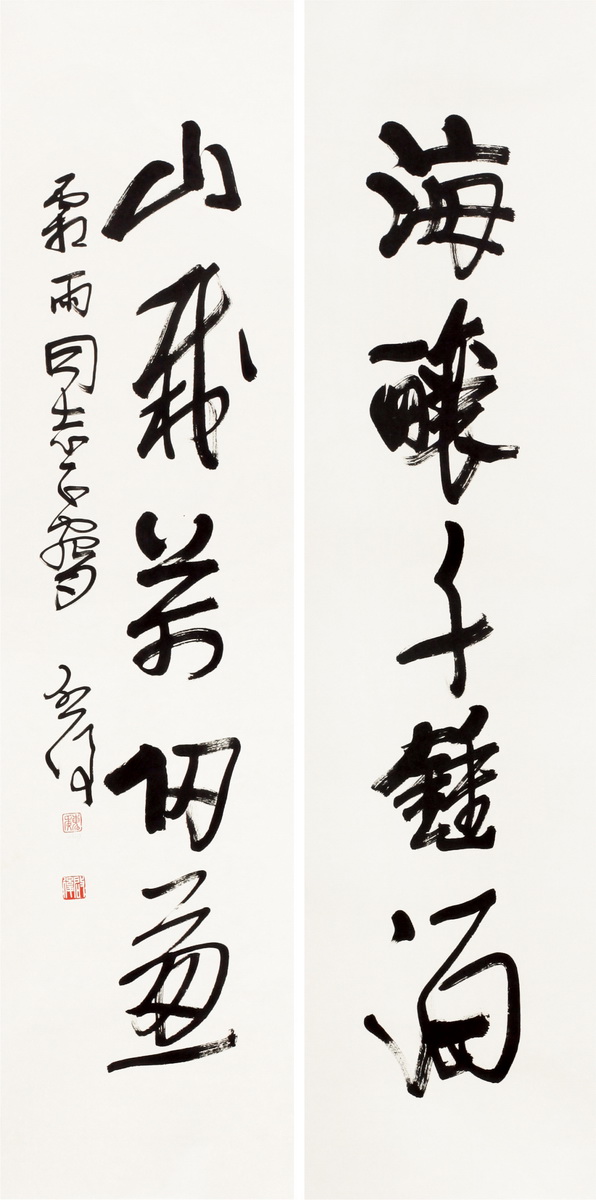 海釀千鍾酒
山栽萬仞葱
霜雨同志